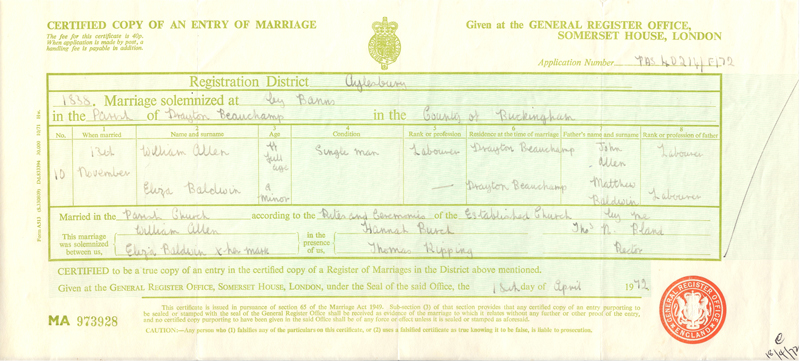 CERTIFIED COPY OF AN ENTRY OF MARRIAGE
Given at the GENERAL REGISTER OFFICE,
SOMERSET HOUSE, LONDON
The fee for this certificate is 40p.
When application is made by post, a
handling fee is payable in addition.
Application Number
Registration District Aylesbury
1838. Marriage solemnized at by Banns
in the Parish of Drayton Beauchamp in the County of Buckingham
No. 1 When married 2 Name and surname 3 Age 4 Condition 5 Rank or profession 6 Residence at the time of marriage 7 Father's name and surname 8 Rank or profession of father
10 13th November
William Allen Of full age Single man Labourer Drayton Beauchamp John Allen Labourer
Eliza Baldwin a Minor — Drayton Beauchamp Matthew Baldwin Labourer
Married in the Parish Church according to the Rites and Ceremonies of the Established Church by me
This marriage was solemnized between us, William Allen
Eliza Baldwin x her mark
in the presence of us, Hannah Burch
Thomas Kipping
Thos N. Bland
Rector
CERTIFIED to be a true copy of an entry in the certified copy of a Register of Marriages in the District above mentioned.
Given at the GENERAL REGISTER OFFICE, SOMERSET HOUSE, LONDON, under the Seal of the said Office, the 18th day of April 1972
MA 973928
This certificate is issued in pursuance of section 65 of the Marriage Act 1949. Sub-section (3) of this section provides that any certified copy of an entry purporting to
be sealed or stamped with the seal of the General Register Office shall be received as evidence of the marriage to which it relates without any further or other proof of the entry,
and no certified copy purporting to have been given in the said Office shall be of any force or effect unless it is sealed or stamped as aforesaid.
CAUTION:—Any person who (1) falsifies any of the particulars on this certificate, or (2) uses a falsified certificate as true knowing it to be false, is liable to prosecution.
GENERAL REGISTER OFFICE
ENGLAND